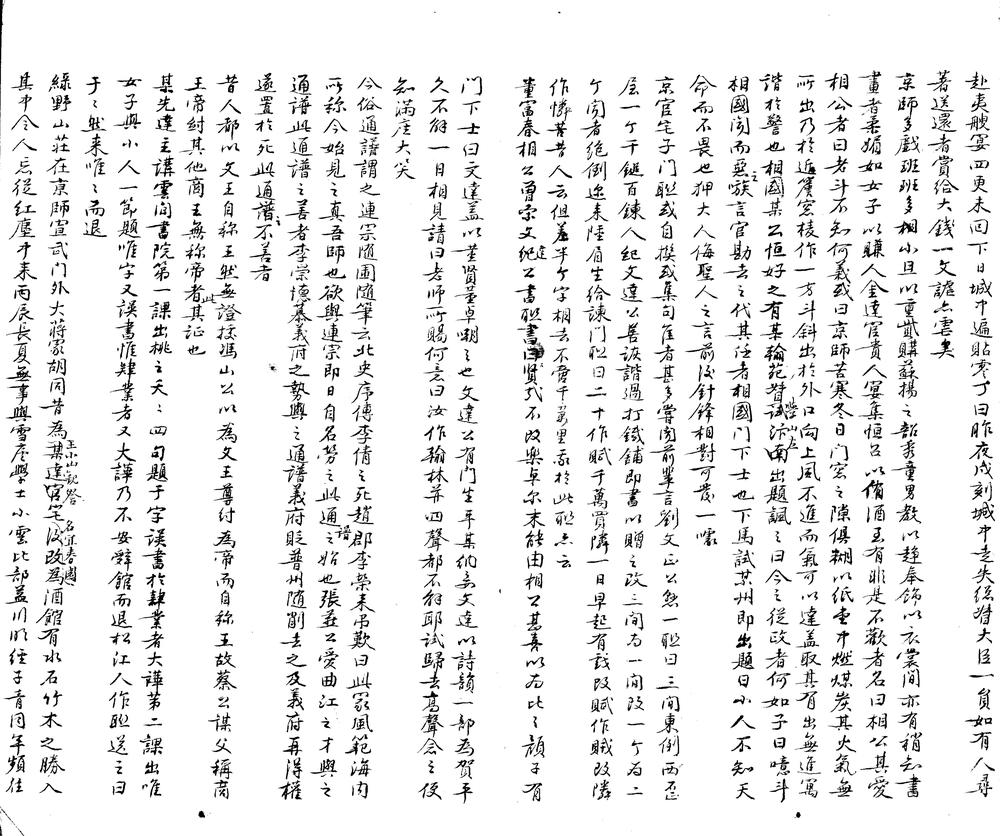 赴夷艘宴四更未回下日城中遍貼零丁曰昨夜戌刻城中走失總督大臣一員如有人尋
著送還者賞給大錢一文謔亦虐矣
京師多戲班班多相小旦以重貲購蘇揚之韶秀童男教以趨奉飾以衣裳間亦有稍知書
畫者柔媚如女子以賺人金達官貴人宴集恒召以侑酒至有非是不歡者名曰相公其愛
相公者曰老斗不知何義或曰京師苦寒冬日門窓之隙俱糊以紙室中燃煤炭其火氣無
所出乃於近簷窓棱作一方斗斜出於外口向上風不進而氣可以達蓋取其有出無進寓
諧於警也相國某公恒好之有某翰苑督學山左試沂南出題諷之曰今之從政者何如子曰噫斗
相國聞而惡之嗾言官劾去之代其任者相國門下士也下馬試某州即出題曰小人不知天
命而不畏也狎大人侮聖人之言前後針鋒相對可發一噱
京官宅子門聯或自撰或集句佳者甚多嘗聞前輩言劉文正公然一聯曰三間東倒西歪
屋一个千鎚百鍊人紀文達公善詼諧過打鐵舖即書以贈之改三間為一間改一个為二
个聞者絶倒近来陸眉生給諫門聯曰二十作賦千萬買隣一日早起有戲改賦作賊改隣
作憐者昔人云但差半个字相去不啻千萬里豕於此聯亦云
董富春相公曾索文達紀公書聯書曰賢弍不改樂卓尔末能由相公甚喜以為比之顏子有
門下士曰文達蓋以董賢董卓嘲之也文達公有門生平某納妾文達以詩韻一部為賀平
久不解一日相見請曰老師所賜何意曰汝作翰林并四聲都不解耶試歸去高聲念之便
知滿座大笑
今俗通譜謂之連宗隨園隨筆云北史序傳李倩之死趙郡李榮来弔歎曰此家風範海内
所称今始見之真吾師也欲與連宗即日自名勞之此通譜之始也張燕公愛曲江之才與之
通譜此通譜之善者李崇德慕義府之勢與之通譜義府貶普州随削去之及義府再得權
遂置於死此通譜之不善者
昔人都以文王自称王然無證按馮山公以為文王尊紂為帝而自称王故蔡公謀父稱商
王帝紂其他商王無称帝者此其証也
某先達主講雲間書院第一課出桃之夭夭四句題于字誤書於肄業者大譁第二課出唯
女子與小人一節題唯字又誤書惟肄業者又大譁乃不安辤館而退松江人作聯送之曰
于于然来唯唯而退
綠野山莊在京師宣武門外大蔣家胡同昔為某達官宅後改為酒館有水石竹木之勝入
王小山觀詧 名宜春園
其中令人忘從紅塵中来丙辰長夏無事與雪屋學士小雲比部益川明經子青同年頻往